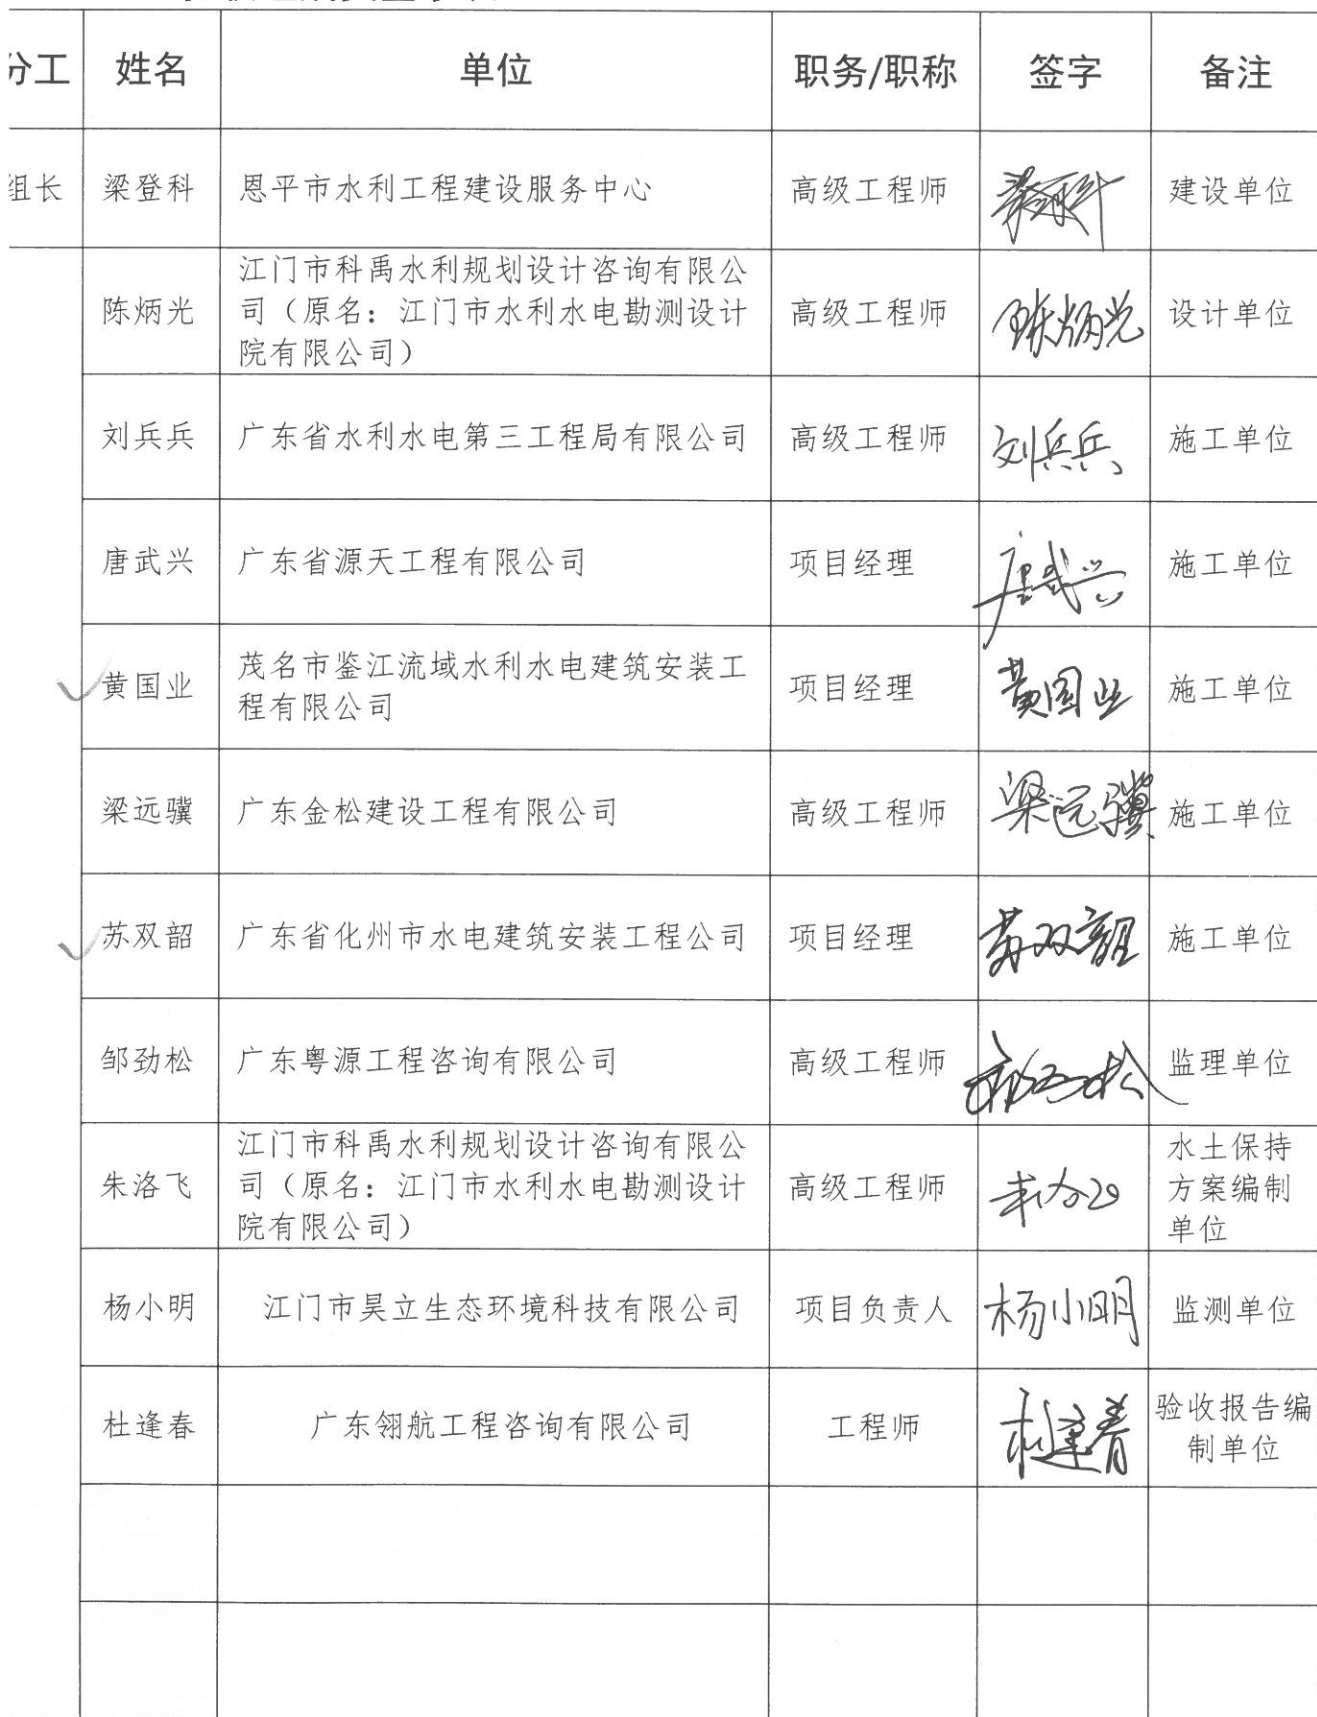 分工 姓名 单位 职务/职称 签字 备注
组长 梁登科 恩平市水利工程建设服务中心 高级工程师 梁登科 建设单位
江门市科禹水利规划设计咨询有限公
陈炳光 司（原名：江门市水利水电勘测设计 高级工程师 陈炳光 设计单位
院有限公司）
刘兵兵 广东省水利水电第三工程局有限公司 高级工程师 刘兵兵 施工单位
唐武兴 广东省源天工程有限公司 项目经理 唐武兴 施工单位
茂名市鉴江流域水利水电建筑安装工
黄国业 项目经理 黄国业 施工单位
程有限公司
梁远骥 广东金松建设工程有限公司 高级工程师 梁远骥 施工单位
苏双韶 广东省化州市水电建筑安装工程公司 项目经理 苏双韶 施工单位
邹劲松 广东粤源工程咨询有限公司 高级工程师 邹劲松 监理单位
江门市科禹水利规划设计咨询有限公 水土保持
朱洛飞 司（原名：江门市水利水电勘测设计 高级工程师 朱洛飞 方案编制
院有限公司） 单位
杨小明 江门市昊立生态环境科技有限公司 项目负责人 杨小明 监测单位
杜逢春 广东翎航工程咨询有限公司 工程师 杜逢春 验收报告编
制单位